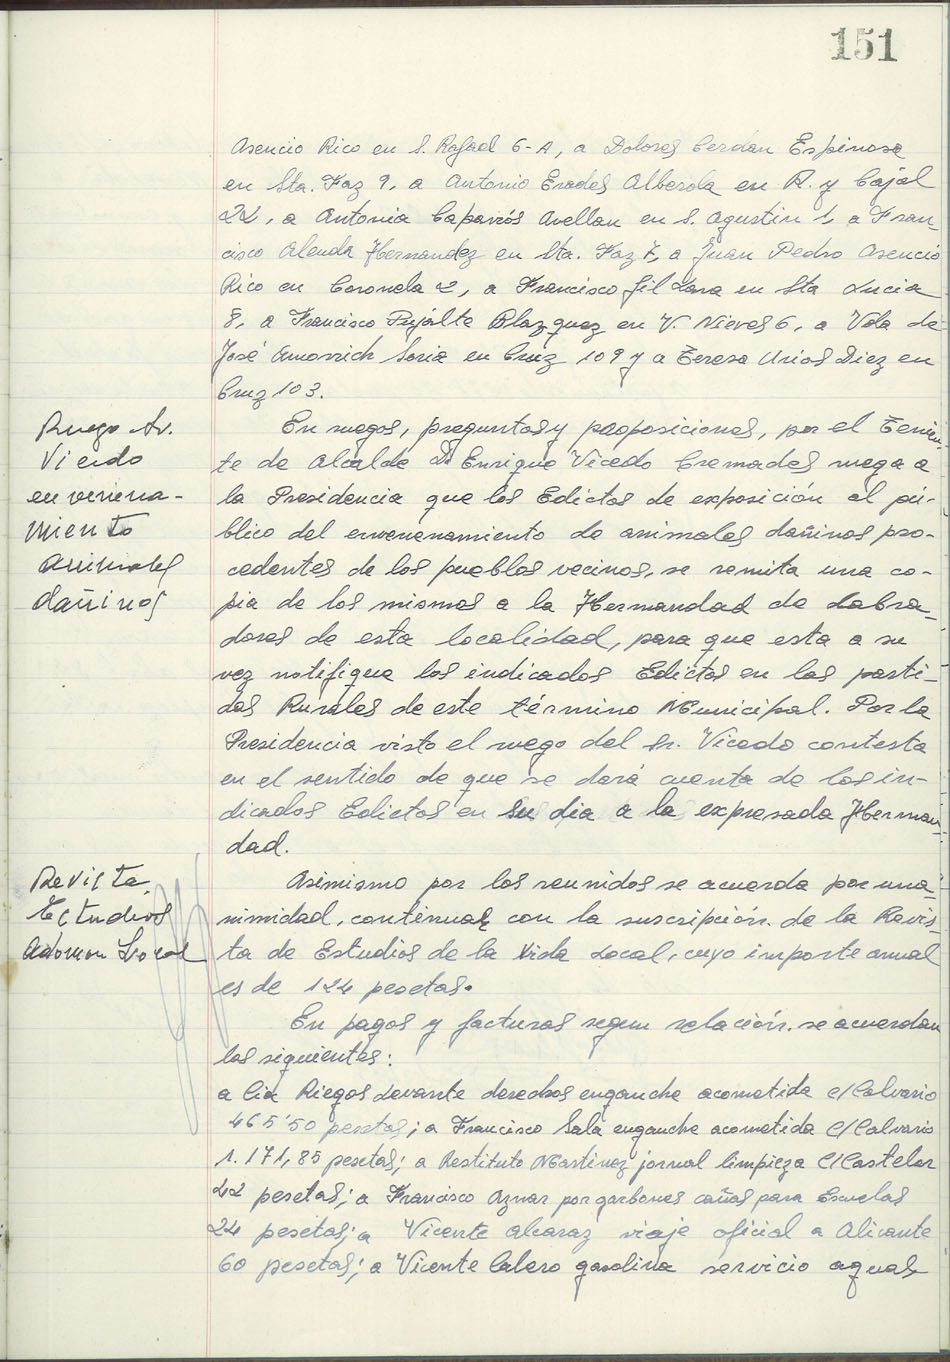 151
Asencio Rico en S. Rafael 6-A, a Dolores Cerdán Espinosa
en Sta. Faz 9, a Antonio Erades Alberola en R. y Cajal
22, a Antonia Caparrós Avellan en S. Agustin 1, a Fran-
cisco Alenda Hernandez en Sta. Faz 7, a Juan Pedro Asencio
Rico en Coronela 2, a Francisco Gil Lara en Sta Lucia
8, a Francisco Pujalte Blazquez en V. Nieves 6, a Vda de
José Amorrich Soria en Cruz 109 y a Teresa Urios Diez en
Cruz 103.
Ruego Sr.
Vicedo
envenena-
miento
animales
dañinos
En ruegos, preguntas y proposiciones, por el Tenien-
te de Alcalde D. Enrique Vicedo Cremades ruega a
la Presidencia que los Edictos de exposición al pú-
blico del envenenamiento de animales dañinos pro-
cedentes de los pueblos vecinos, se remita una co-
pia de los mismos a la Hermandad de Labra-
dores de esta localidad, para que esta a su
vez notifique los indicados Edictos en las parti-
das Rurales de este término Municipal. Por la
Presidencia visto el ruego del Sr. Vicedo contesta
en el sentido de que se dará cuenta de los in-
dicados Edictos en su dia a la expresada Herman-
dad.
Revista
Estudios
Admon Local
Asimismo por los reunidos se acuerda por una-
nimidad, continuar con la suscripción de la Revis-
ta de Estudios de la Vida Local, cuyo importe anual
es de 124 pesetas.
En pagos y facturas segun relación, se acuerdan
los siguientes:
a Cia Riegos Levante derechos enganche acometida C/Calvario
465'50 pesetas; a Francisco Sala enganche acometida C/Calvario
1.171,85 pesetas; a Restituto Martinez jornal limpieza C/Castelar
42 pesetas; a Francisco Aznar por garbones cañas para Escuelas
24 pesetas; a Vicente Alcaraz viaje oficial a Alicante
60 pesetas; a Vicente Calero gasolina servicio aguas